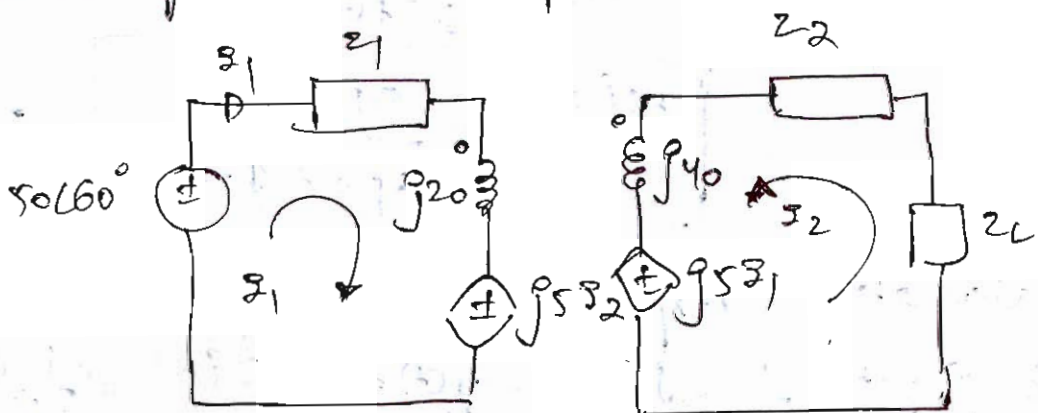 Z2
I1
Z1
50∠60°
j20
j40
I2
ZL
I1
j5I2
j5I1